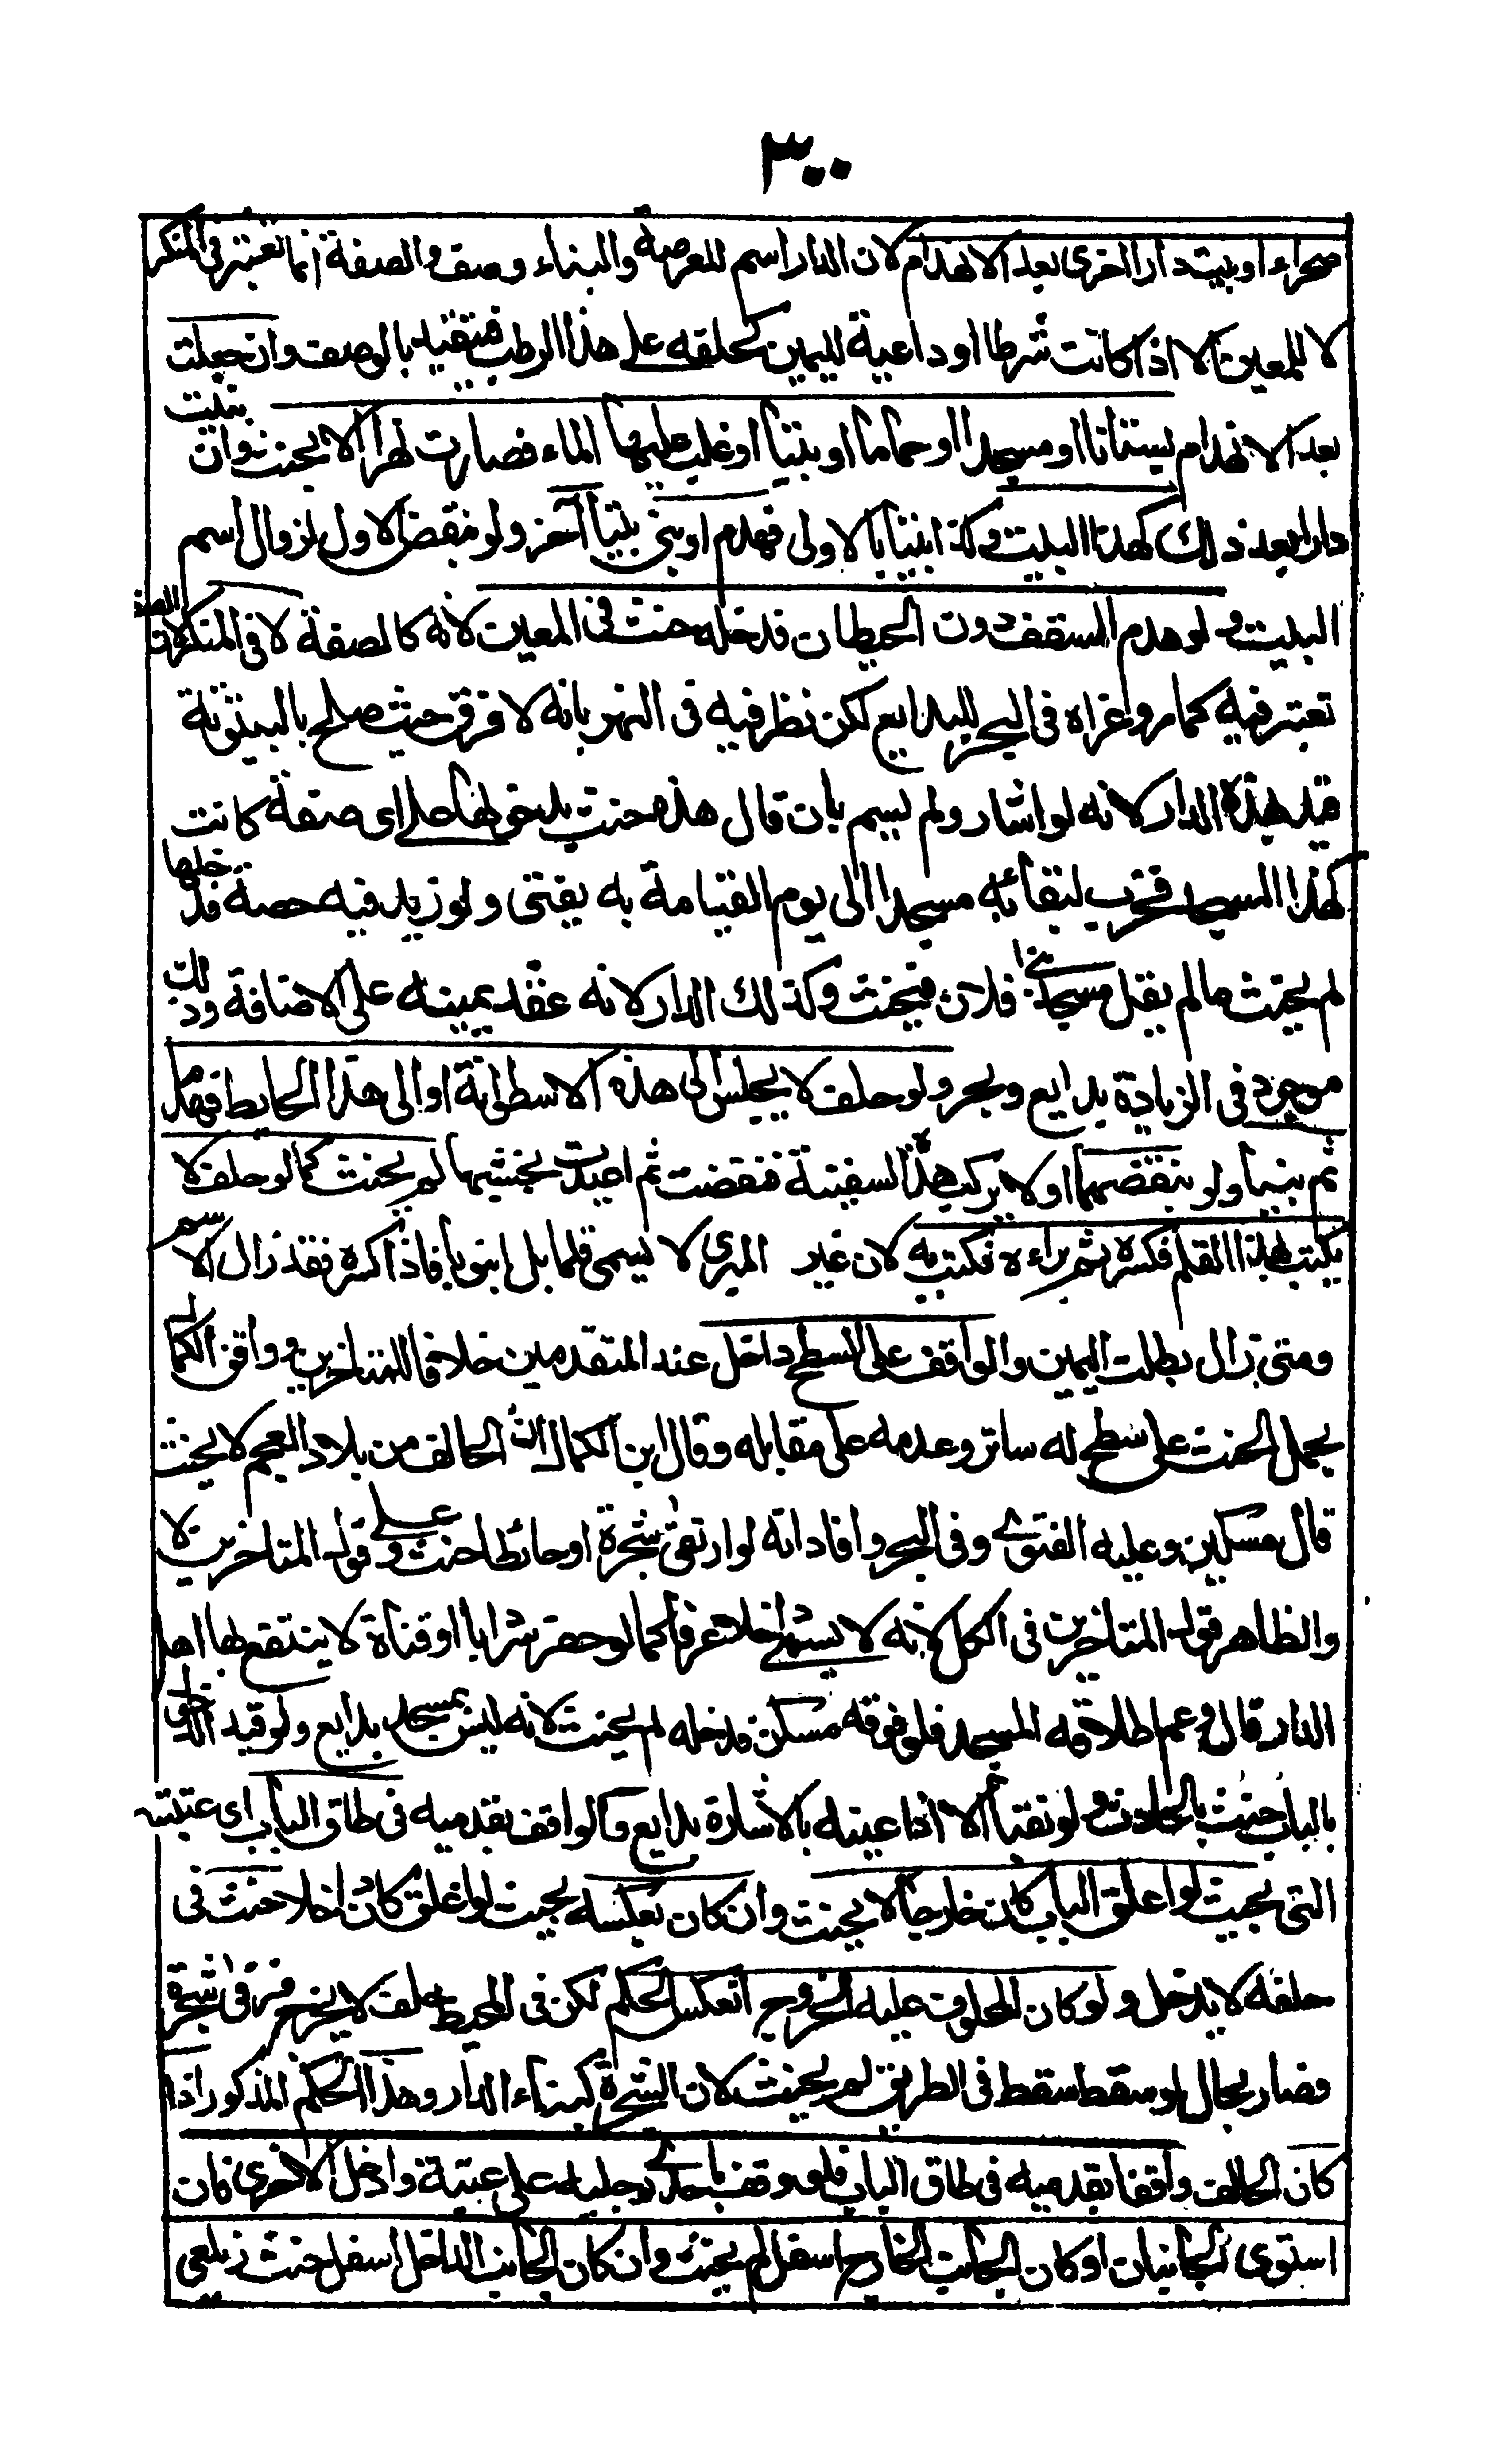 ٣٠٠
صحراء او بنيت دارا اخرى بعد الانهدام لان الدار اسم للعرصة والبناء وصف والصفة انما تعتبر في المنكر
لا المعين الا اذا كانت شرطا او داعية لليمين كحلفه على هذا الرطب فتقيد بالوصف وان جعلت
بعد الانهدام بستانا او مسجدا او حماما او بيتا او غلب عليها الماء فصارت نهرا لا يحنث وان بنيت
دارا بعد ذلك كهذا البيت وكذا بيتا بالاولى فهدم او بنى بيتا آخر ولو بنقض الاول لزوال اسم
البيت ولو هدم السقف دون الحيطان فدخله حنث في المعين لانه كالصفة لا في المنكر لان الصفة
تعتبر فيه كما مر وعزاه في البحر للبدايع لكن نظر فيه في النهر بانه لا فرق حيث صلح بالبيتوتة
قيد بهذه الدار لانه لو اشار ولم يسم بان قال هذه حنث بدخولها على اى صفة كانت
كهذا المسجد فخرب لبقائه مسجدا الى يوم القيامة به يفتى ولو زيد فيه حصة فدخلها
لم يحنث ما لم يقل مسجد بنى فلان فيحنث وكذلك الدار لانه عقد يمينه على الاضافة وذلك
موجود في الزيادة بدايع وبحر ولو حلف لا يجلس الى هذه الاسطوانة او الى هذا الحايط فهدما
ثم بنيا ولو بنقضهما او لا يركب هذه السفينة فنقضت ثم اعيدت بخشبها لم يحنث كما لو حلف لا
يكتب بهذا القلم فكسره ثم براه فكتب به لان غير المبرى لا يسمى قلما بل انبوبا فاذا كسره فقد زال الاسم
ومتى زال بطلت اليمين والواقف على السطح داخل عند المتقدمين خلافا للمتاخرين ووافق الكمال
بحمل الحنث على سطح له ساتر وعدمه على مقابله وقال ابن الكمال ان الحالف من بلاد العجم لا يحنث
قال مسكين وعليه الفتوى وفي البحر وافاد انه لو ارتقى شجرة او حائطا حنث وعلى قول المتاخرين لا
والظاهر قول المتاخرين في الكل لانه لا يسمى داخلا عرفا كما لو حفر سردابا او قناة لا ينتفع بها اهل
الدار قال وعم اطلاقه المسجد فلو فوقه مسكن فدخله لم يحنث لانه ليس بمسجد بدايع ولو قيد الدخول
بالباب حنث بالحادث ولو نقبا الا اذا عينه بالاشارة بدايع وكالواقف بقدميه في طاق الباب اى عتبته
التى بحيث لو اغلق الباب كان خارجا لا يحنث وان كان بعكسه بحيث لو اغلق كان داخلا حنث في
حلفه لا يدخل ولو كان المحلوف عليه الخروج انعكس الحكم لكن في المحيط حلف لا يخرج فرقى شجرة
فصار بحال لو سقط سقط في الطريق لم يحنث لان الشجرة كبناء الدار وهذا الحكم المذكور اذا
كان الحالف واقفا بقدميه في طاق الباب فلو وقف باحدى رجليه على عتبة وادخل الاخرى فان
استوى الجانبان او كان الجانب الخارج اسفل لم يحنث وان كان الجانب الداخل اسفل حنث زيلعى